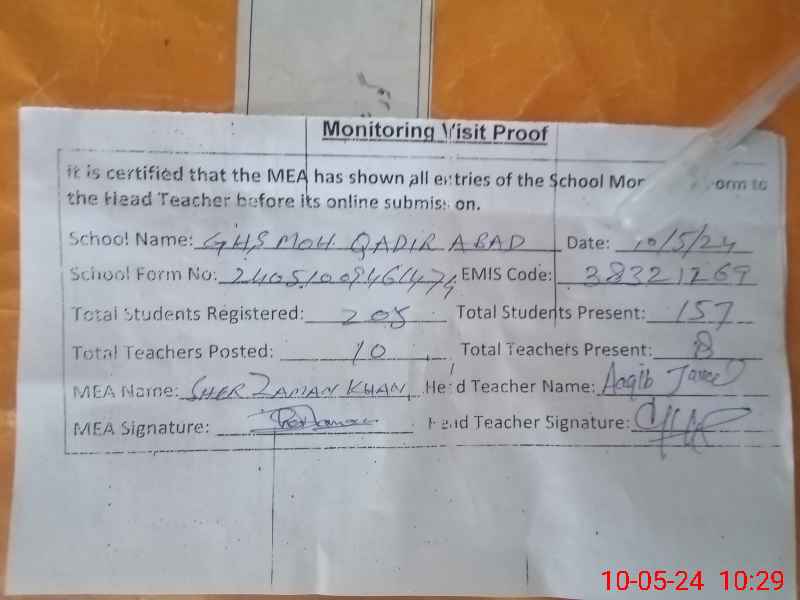 Monitoring Visit Proof
It is certified that the MEA has shown all entries of the School Mor orm to
the Head Teacher before its online submission.
School Name: GHS MOH QADIR ABAD Date: 10/5/24
School Form No: EMIS Code: 38321269
Total Students Registered: 205 Total Students Present: 157
Total Teachers Posted: 10 Total Teachers Present: 8
MEA Name: SHER ZAMAN KHAN Head Teacher Name: Aaqib
MEA Signature: Head Teacher Signature:
10-05-24 10:29